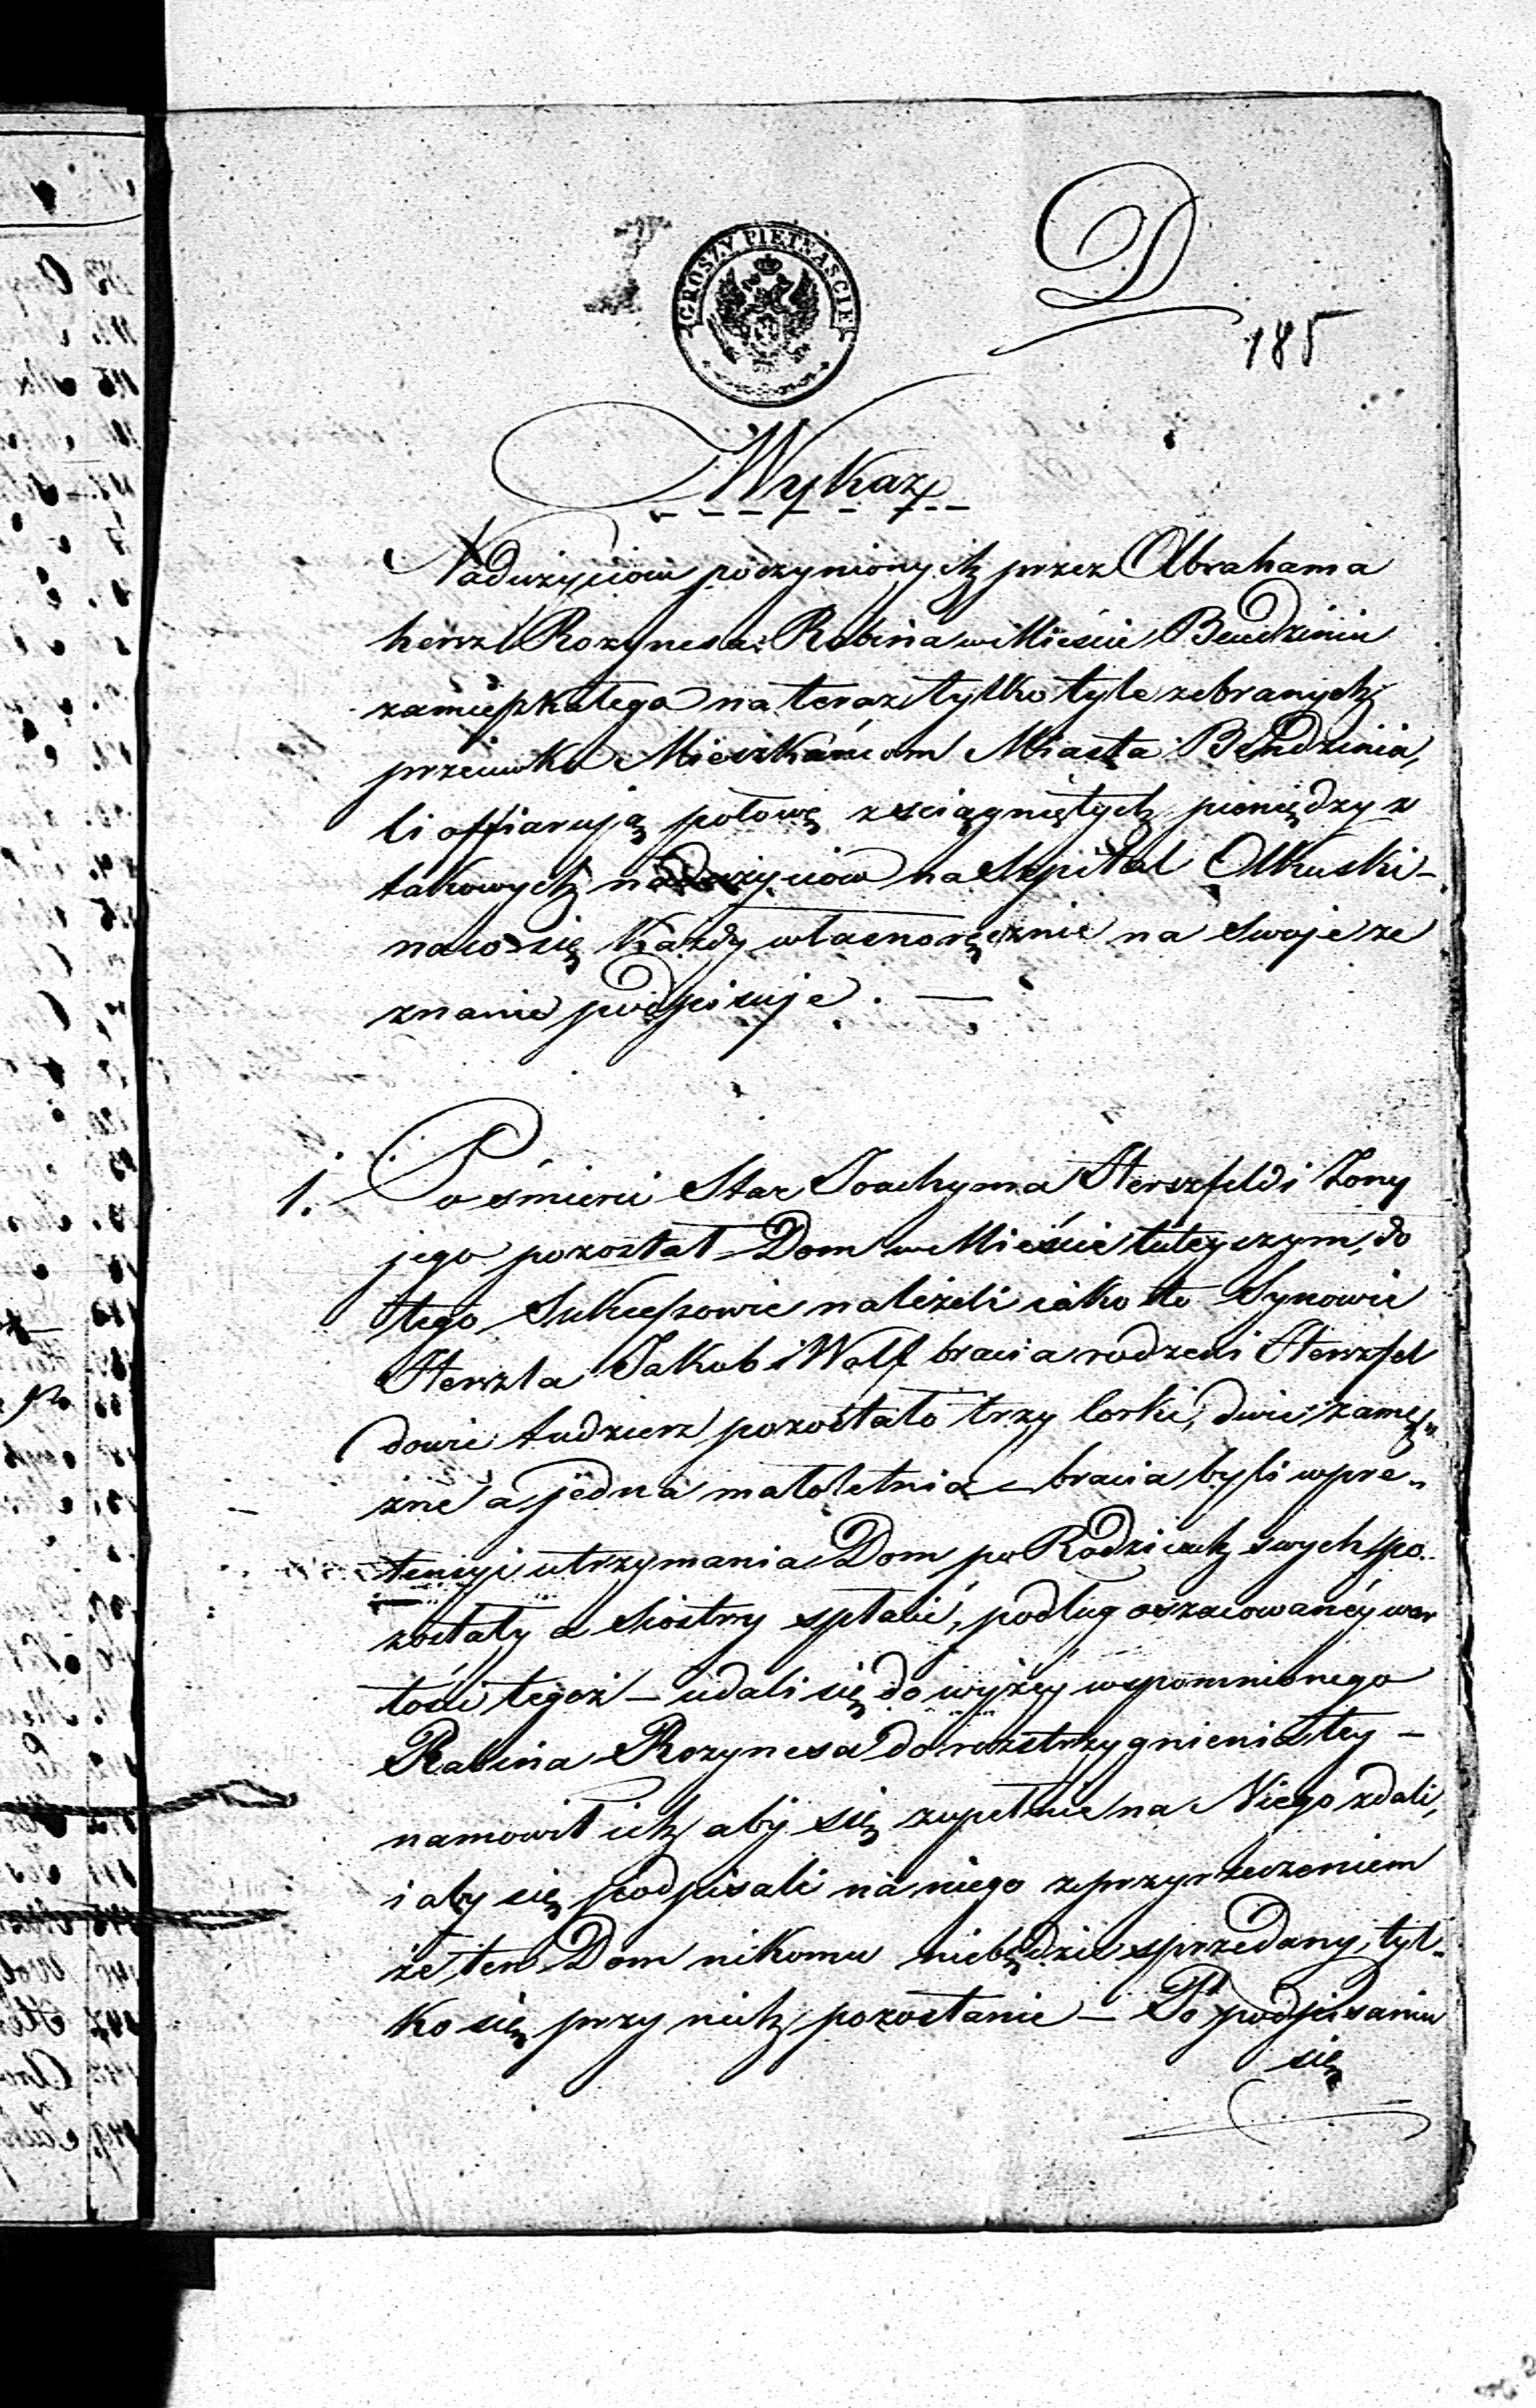 D
185
GROSZY PIETNAŚCIE
Wykaz
Nadużyciow poczynionych przez Abrahama
herszl Rozynesa Rabina w Mieście Bendzinie
zamięszkałego na teraz tylko tyle zebranych
przeciwko Mieszkańcom Miasta Bendzinia,
ti offiarują połowę zściągniętych pieniędzy z
takowych nadużyciow na Szpital Olkuski –
na co się Każdy własnoręcznie na swoje ze
znanie podpisuje. —
1. Po śmierci Star Joachyma Herszfeld i Żony
jego pozostał Dom w Mieście tuteyszym, do
tego Sukcessowie należeli iako to Synowie
Herszla Jakub i Wolf bracia rodzeni Herszfel
dowie tudzierz pozostało trzy Corki, dwie zamę„
żne a jedna małoletnia – bracia byli w pre„
tensyi utrzymania Dom po Rodzicach swych po„
zostały a Siostry spłacić, podług oszacowanéy war
tości tegoż – udali się do wyżéy wspomnionego
Rabina Rozynesa do rozstrzygnienia tey –
namowił ich aby się zupełnie na Niego zdali,
i aby się podpisali na niego z przyrzeczeniem
że ten Dom nikomu niebędzie sprzedany, tyl„
ko się przy nich pozostanie – Po podpisaniu
się